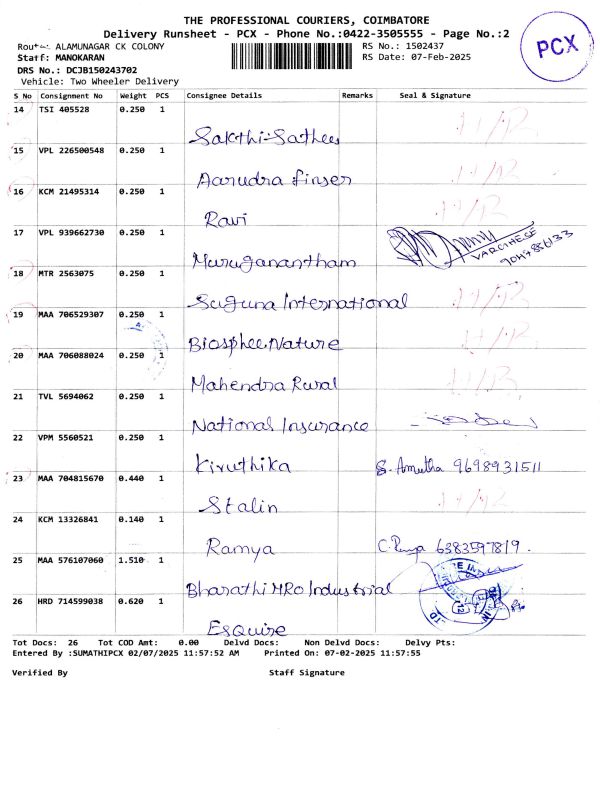 THE PROFESSIONAL COURIERS, COIMBATORE
Delivery Runsheet - PCX - Phone No.:0422-3505555 - Page No.:2
PCX
Route: ALAMUNAGAR CK COLONY RS No.: 1502437
Staff: MANOKARAN RS Date: 07-Feb-2025
DRS No.: DCJB150243702
Vehicle: Two Wheeler Delivery
S No Consignment No Weight PCS Consignee Details Remarks Seal & Signature
14 TSI 405528 0.250 1
Sakthi-Sathees
15 VPL 226500548 0.250 1
Aarudra finser
16 KCM 21495314 0.250 1
Ravi
17 VPL 939662730 0.250 1
VARGHESE
Muruganantham
18 MTR 2563075 0.250 1
Suguna International
19 MAA 706529307 0.250 1
Biosphee Nature
20 MAA 706088024 0.250 1
Mahendra Rural
21 TVL 5694062 0.250 1
National Insurance
22 VPM 5560521 0.250 1
Kiruthika S. Amutha 9698931511
23 MAA 704815670 0.440 1
Stalin
24 KCM 13326841 0.140 1
Ramya 6383597819.
25 MAA 576107060 1.510 1
Bharathi MRO Industrial
26 HRD 714599038 0.620 1
Esquire
Tot Docs: 26 Tot COD Amt: 0.00 Delvd Docs: Non Delvd Docs: Delvy Pts:
Entered By :SUMATHIPCX 02/07/2025 11:57:52 AM Printed On: 07-02-2025 11:57:55
Verified By Staff Signature